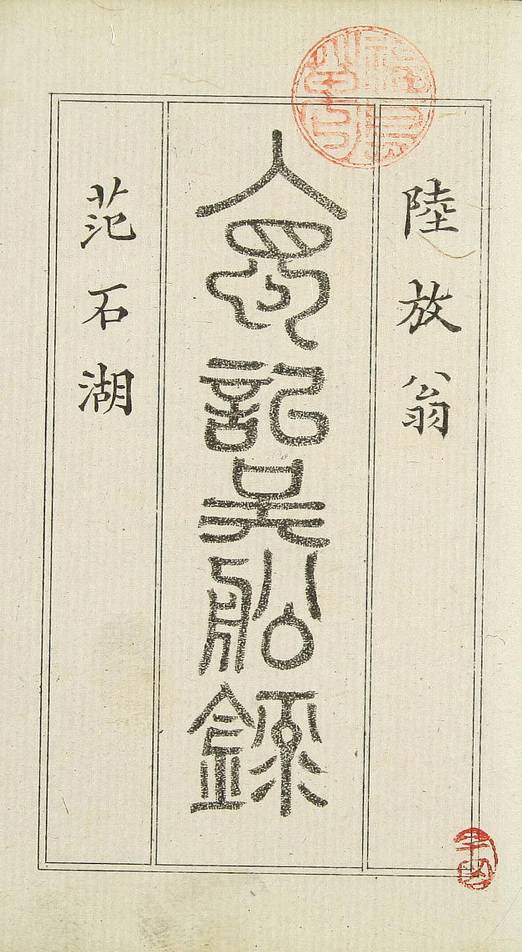 陸放翁
入蜀記吳船錄
范石湖